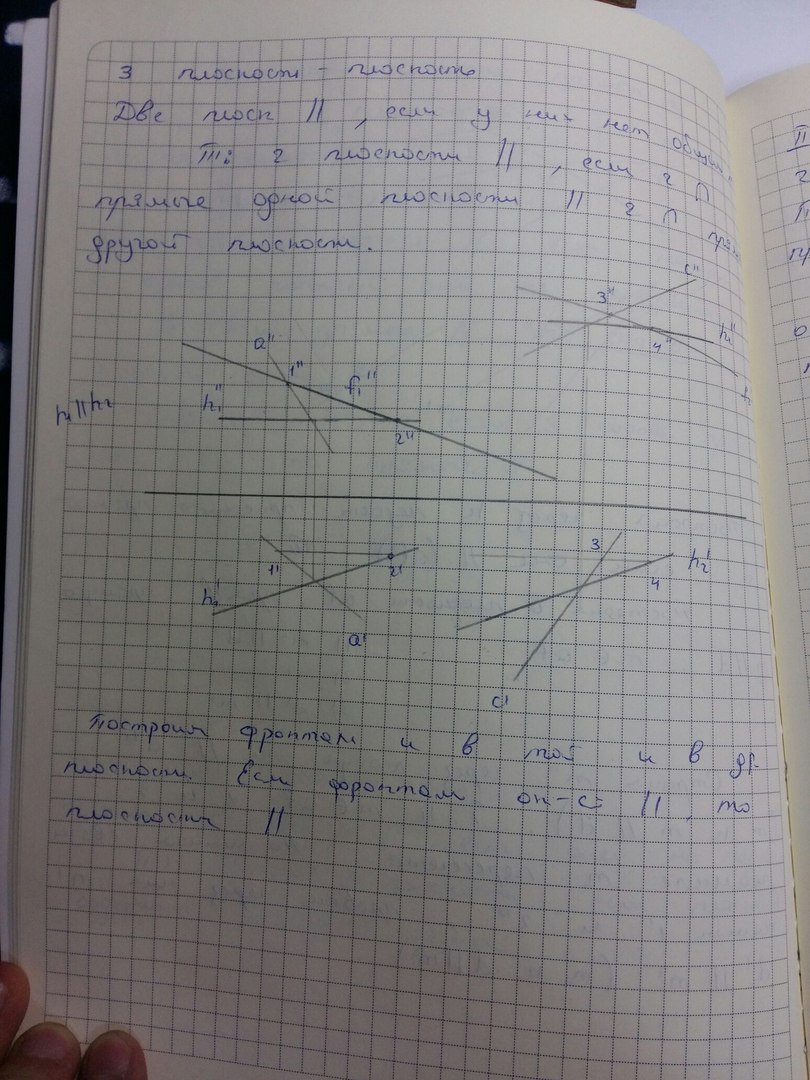 3 плоскости – плоскость
Две плоск //, если у них нет общих
III: 2 плоскости //, если 2 ∩
прямые одной плоскости // 2 ∩ прям
другой плоскости.
c''
3''
h₁''
4''
a''
1''
f₁''
h₁''
2''
h₁ || h₂
3
h₂'
1'
2'
4
h₁'
a'
c'
Построим фронтам и в той и в др.
плоскости. Если форонтам ок-сь //, то
плоскости //